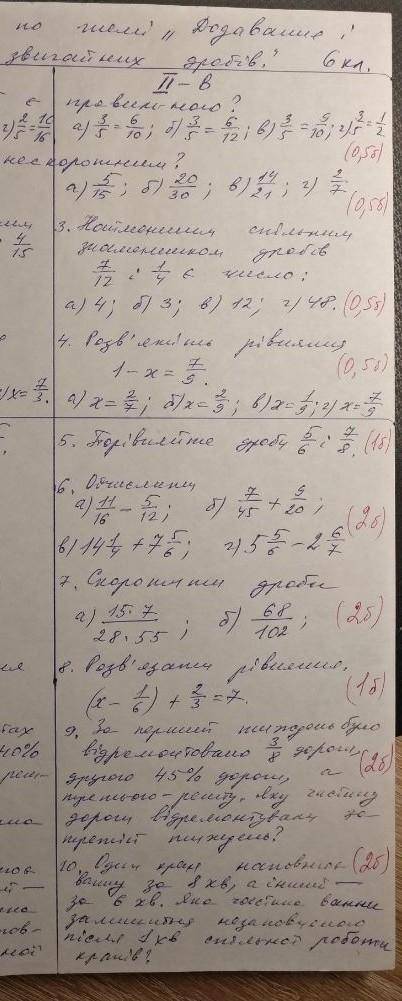 по темі „Додавання і
звичайних дробів." 6 кл.
II - В
є правильною?
г) 2/5 = 10/16. а) 3/5 = 6/10; б) 3/5 = 6/12; в) 3/5 = 9/10; г) 3/5 = 1/2
(0,5б)
нескоротним?
а) 5/15; б) 20/30; в) 14/21; г) 2/7
(0,5б)
3. Найменшим спільним
4/15 знаменником дробів
7/12 і 1/4 є число:
а) 4; б) 3; в) 12; г) 48. (0,5б)
4. Розв'яжіть рівняння
1 - x = 7/9. (0,5б)
x = 7/3. а) x = 2/7; б) x = 2/9; в) x = 1/9; г) x = 7/9
5. Порівняйте дроби 5/6 і 7/8. (1б)
6. Обчислити
а) 11/16 - 5/12; б) 7/45 + 9/20;
(2б)
в) 14 1/4 + 7 5/6; г) 5 5/6 - 2 6/7
7. Скоротити дроби
а) 15·7/28·55; б) 68/102; (2б)
8. Розв'язати рівняння.
(x - 1/6) + 2/3 = 7. (1б)
9. За перший тиждень було
40% відремонтовано 3/8 дороги, (2б)
другого 45% дороги, а
третього - решту. Яку частину
дороги відремонтували за
третій тиждень?
10. Один кран наповнює (2б)
ванну за 8 хв, а інший —
за 6 хв. Яка частина ванни
залишиться незаповненою
після 1 хв спільної роботи
кранів?